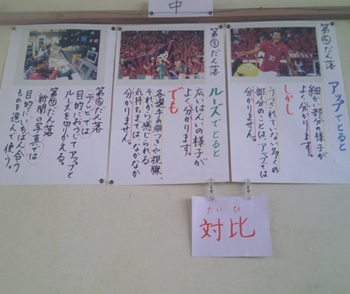 中
第④だん落
アップでとると
細かい部分の様子が
よく分かります。
しかし
うつされていない多くの
部分のことは、アップでは
分かりません。
第⑤だん落
ルーズでとると
広いはんいの様子が
よく分かります。
でも
各選手の顔つきや視線、
それから感じられる
気持ちまでは、なかなか
分かりません。
第⑥だん落
テレビでは
目的におうじてアップと
ルーズを切りかえる。
第⑦だん落
新聞の写真では
目的にいちばん合う
ものを選んで使う。
たい ひ
対比